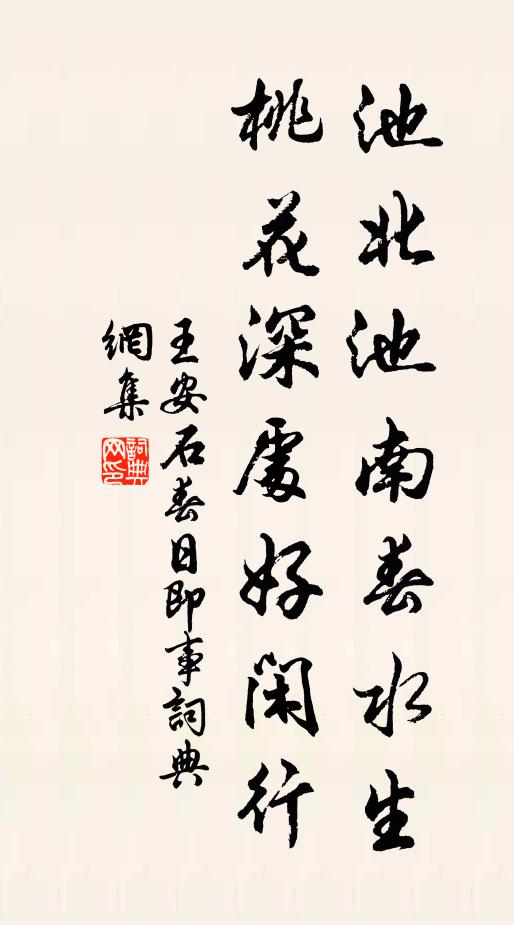 池北池南春水生
桃花深處好閑行
王安石春日即事詞典
網集
詞典網印